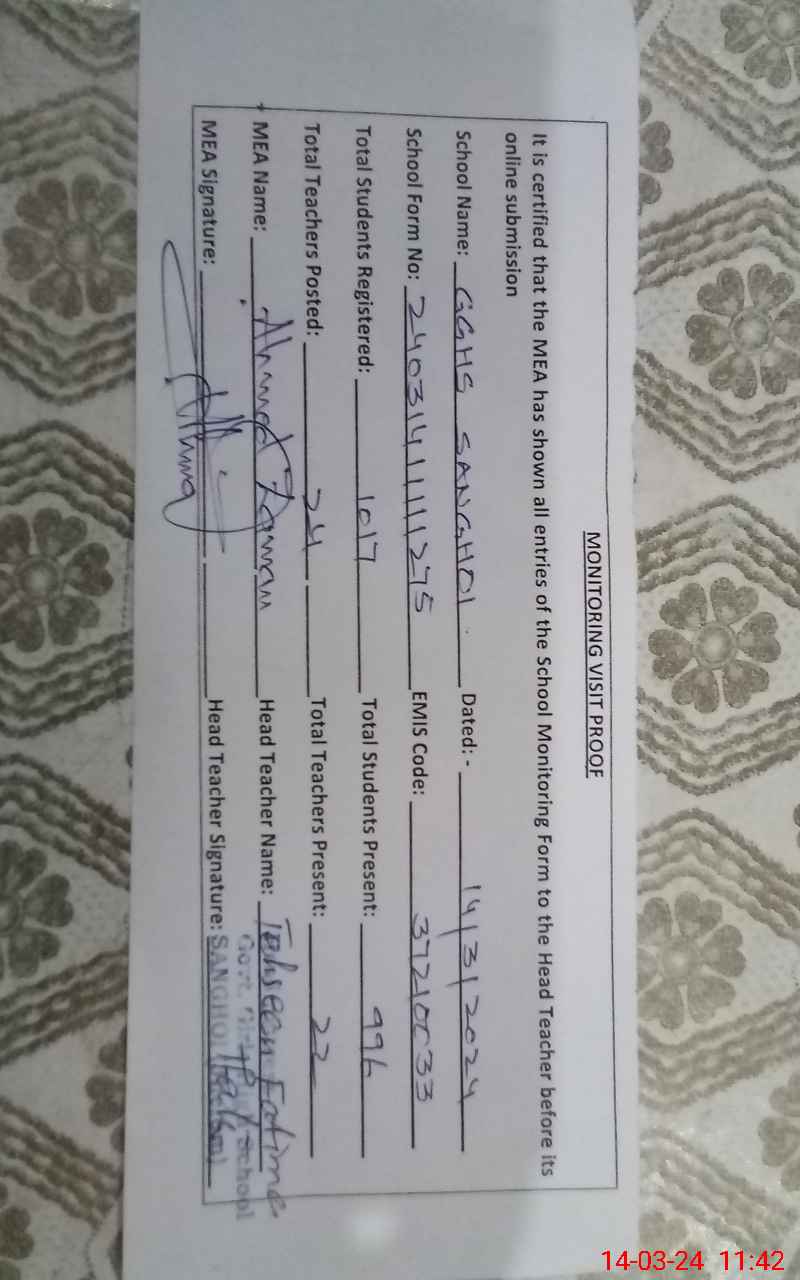 MONITORING VISIT PROOF
It is certified that the MEA has shown all entries of the School Monitoring Form to the Head Teacher before its
online submission
School Name: GGHS SANGHOI. Dated: - 14/3/2024
School Form No: 24031411111275 EMIS Code: 37210033
Total Students Registered: 1017 Total Students Present: 996
Total Teachers Posted: 24 Total Teachers Present: 22
MEA Name: Ahmed Zaman Head Teacher Name: Tehseen Fatima
MEA Signature: Head Teacher Signature:
Govt. Girls High School
SANGHOI
14-03-24 11:42